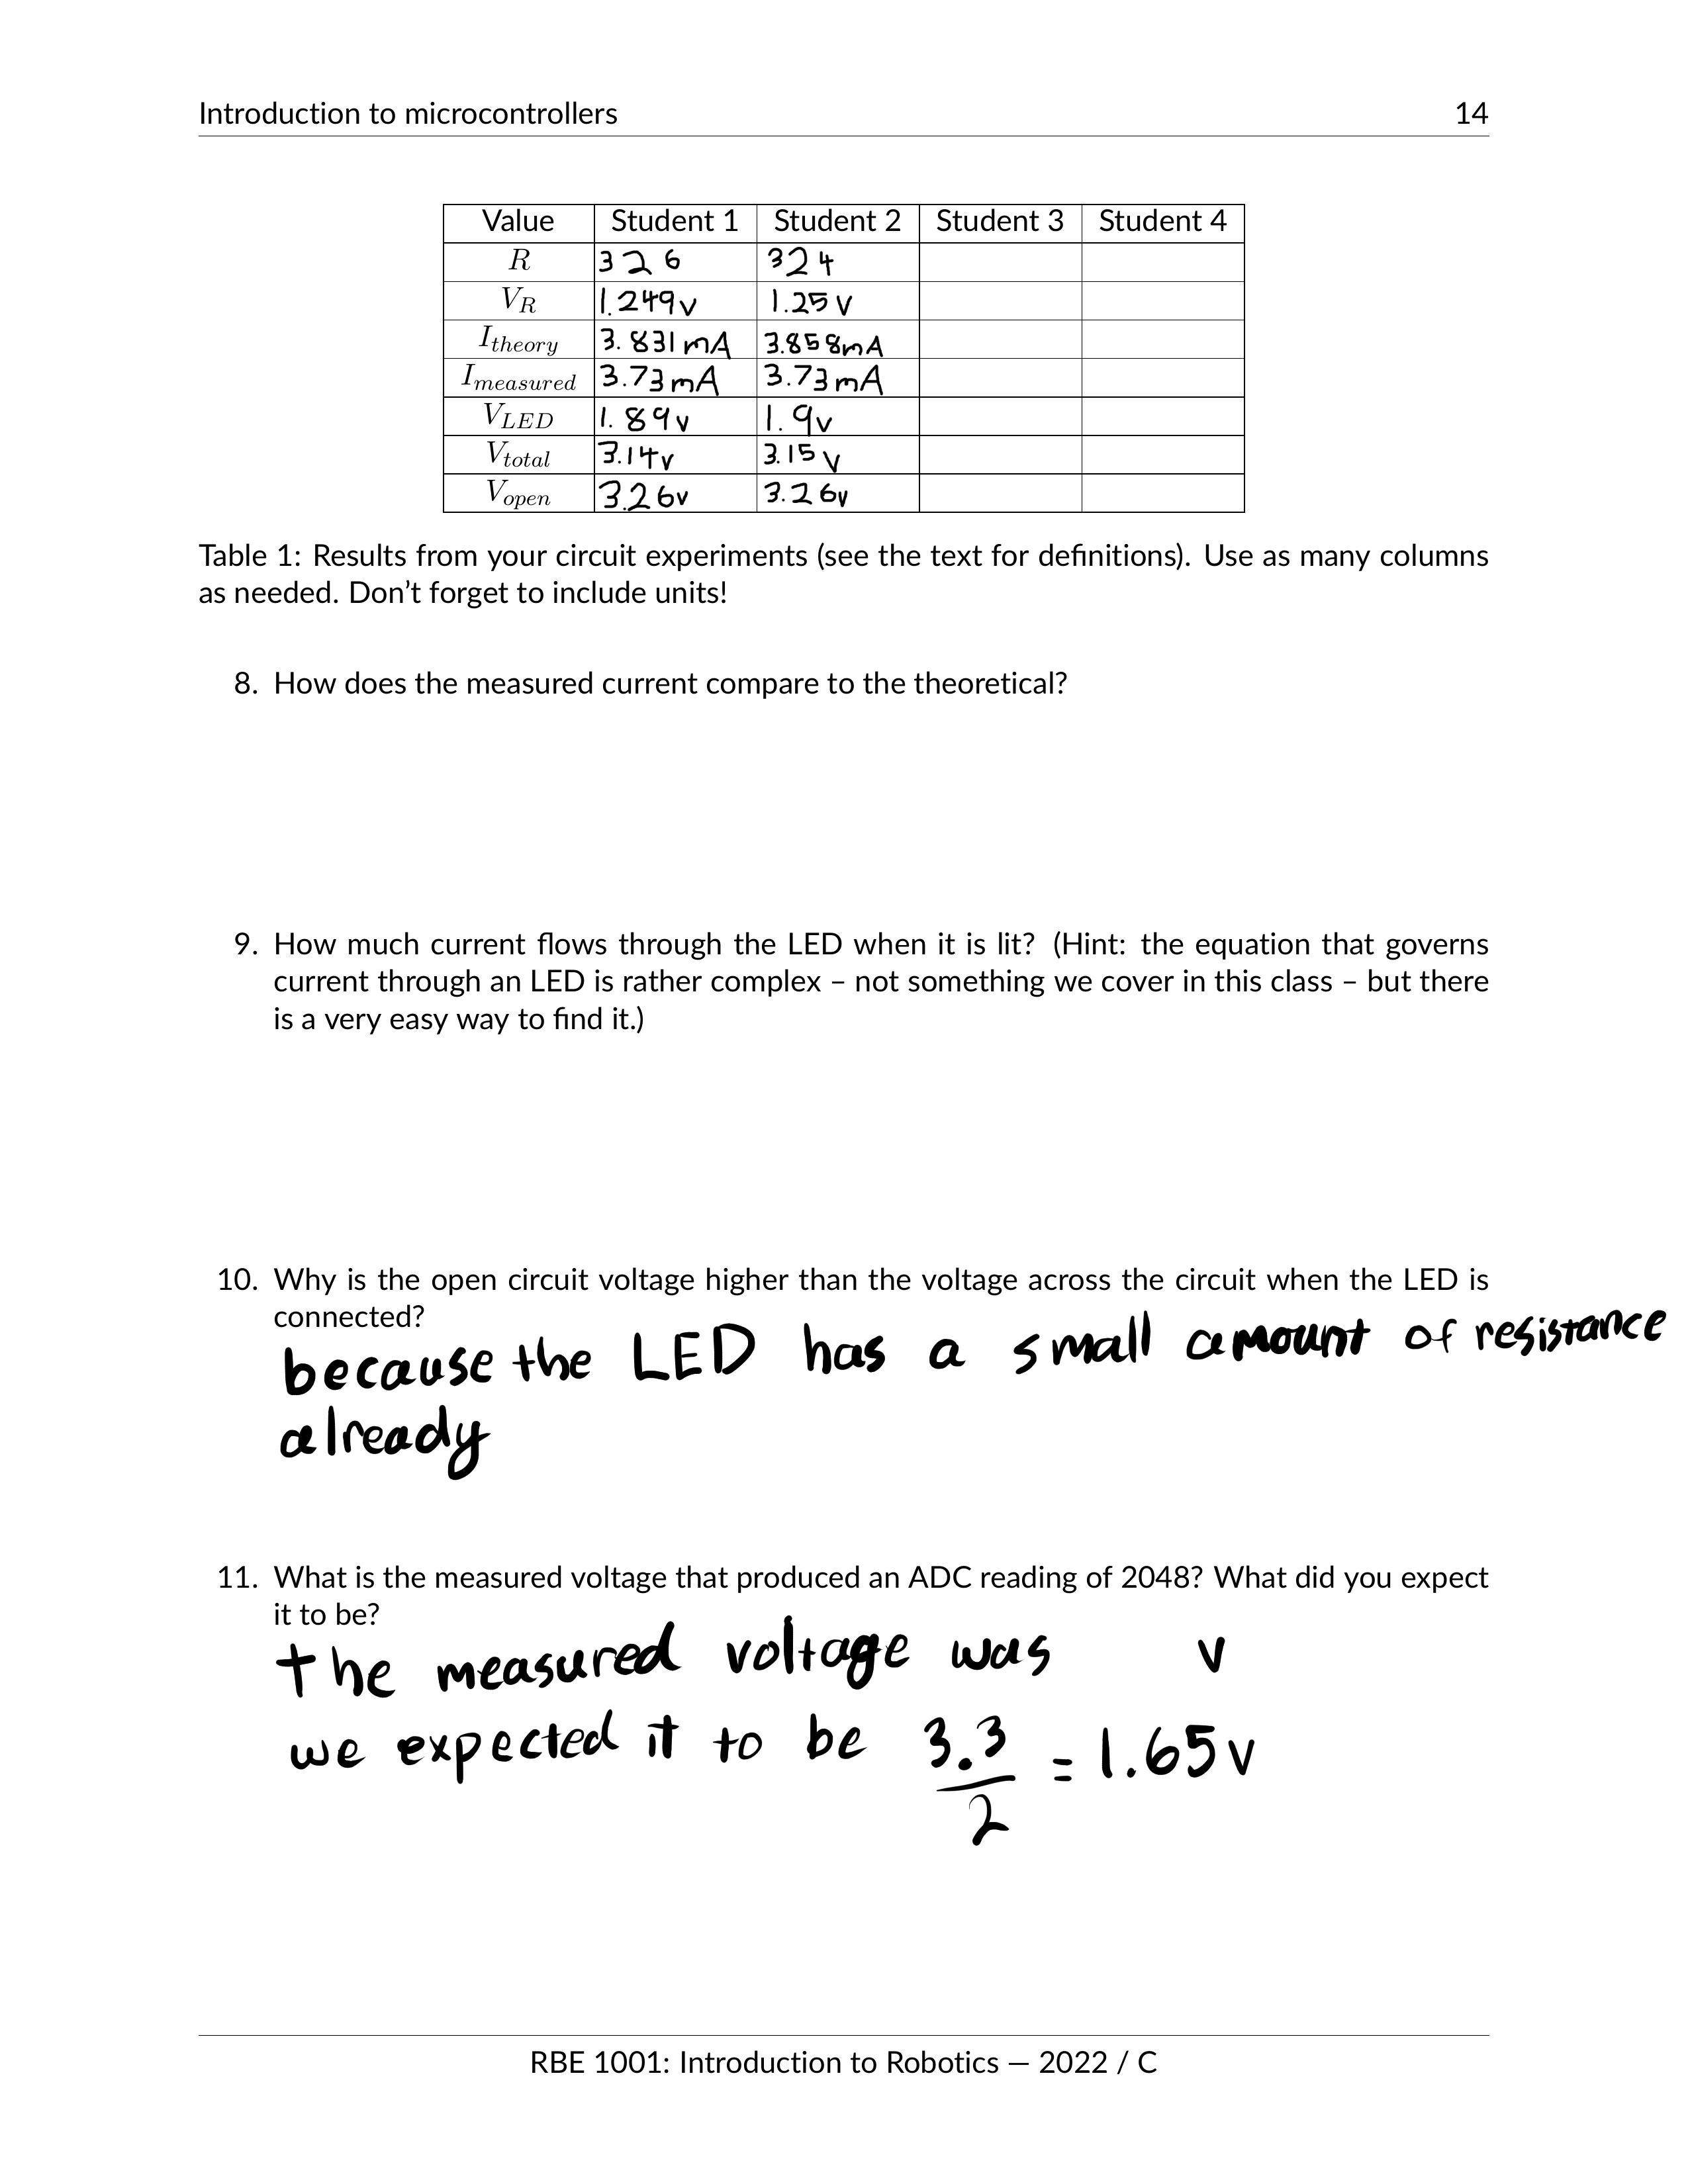 Introduction to microcontrollers 14
Value Student 1 Student 2 Student 3 Student 4
R 326 324
V_R 1.249v 1.25V
I_theory 3.831mA 3.858mA
I_measured 3.73mA 3.73mA
V_LED 1.89v 1.9v
V_total 3.14v 3.15V
V_open 3.26v 3.26v
Table 1: Results from your circuit experiments (see the text for definitions). Use as many columns
as needed. Don't forget to include units!
8. How does the measured current compare to the theoretical?
9. How much current flows through the LED when it is lit? (Hint: the equation that governs
current through an LED is rather complex – not something we cover in this class – but there
is a very easy way to find it.)
10. Why is the open circuit voltage higher than the voltage across the circuit when the LED is
connected?
because the LED has a small amount of resistance
already
11. What is the measured voltage that produced an ADC reading of 2048? What did you expect
it to be?
the measured voltage was v
we expected it to be 3.3/2 = 1.65v
RBE 1001: Introduction to Robotics — 2022 / C